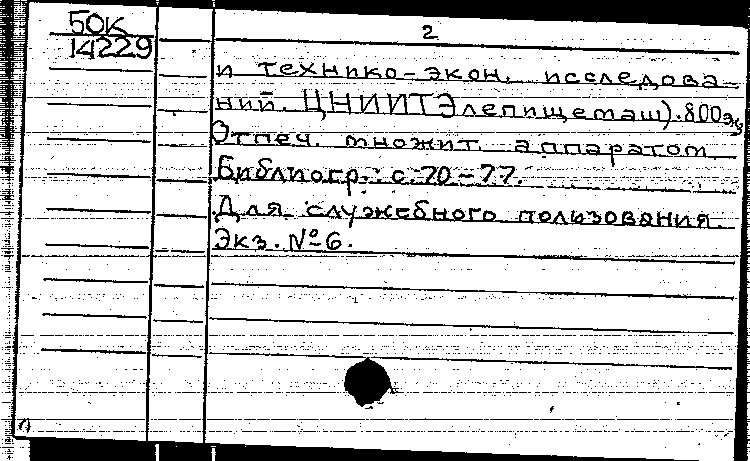 БОК 2
14229
и технико-экон. исследова-
ний. ЦНИИТЭлегпищемаш). 800 экз
Отпеч. множит. аппаратом
Библиогр.: с. 70-77.
Для служебного пользования.
Экз. № 6.